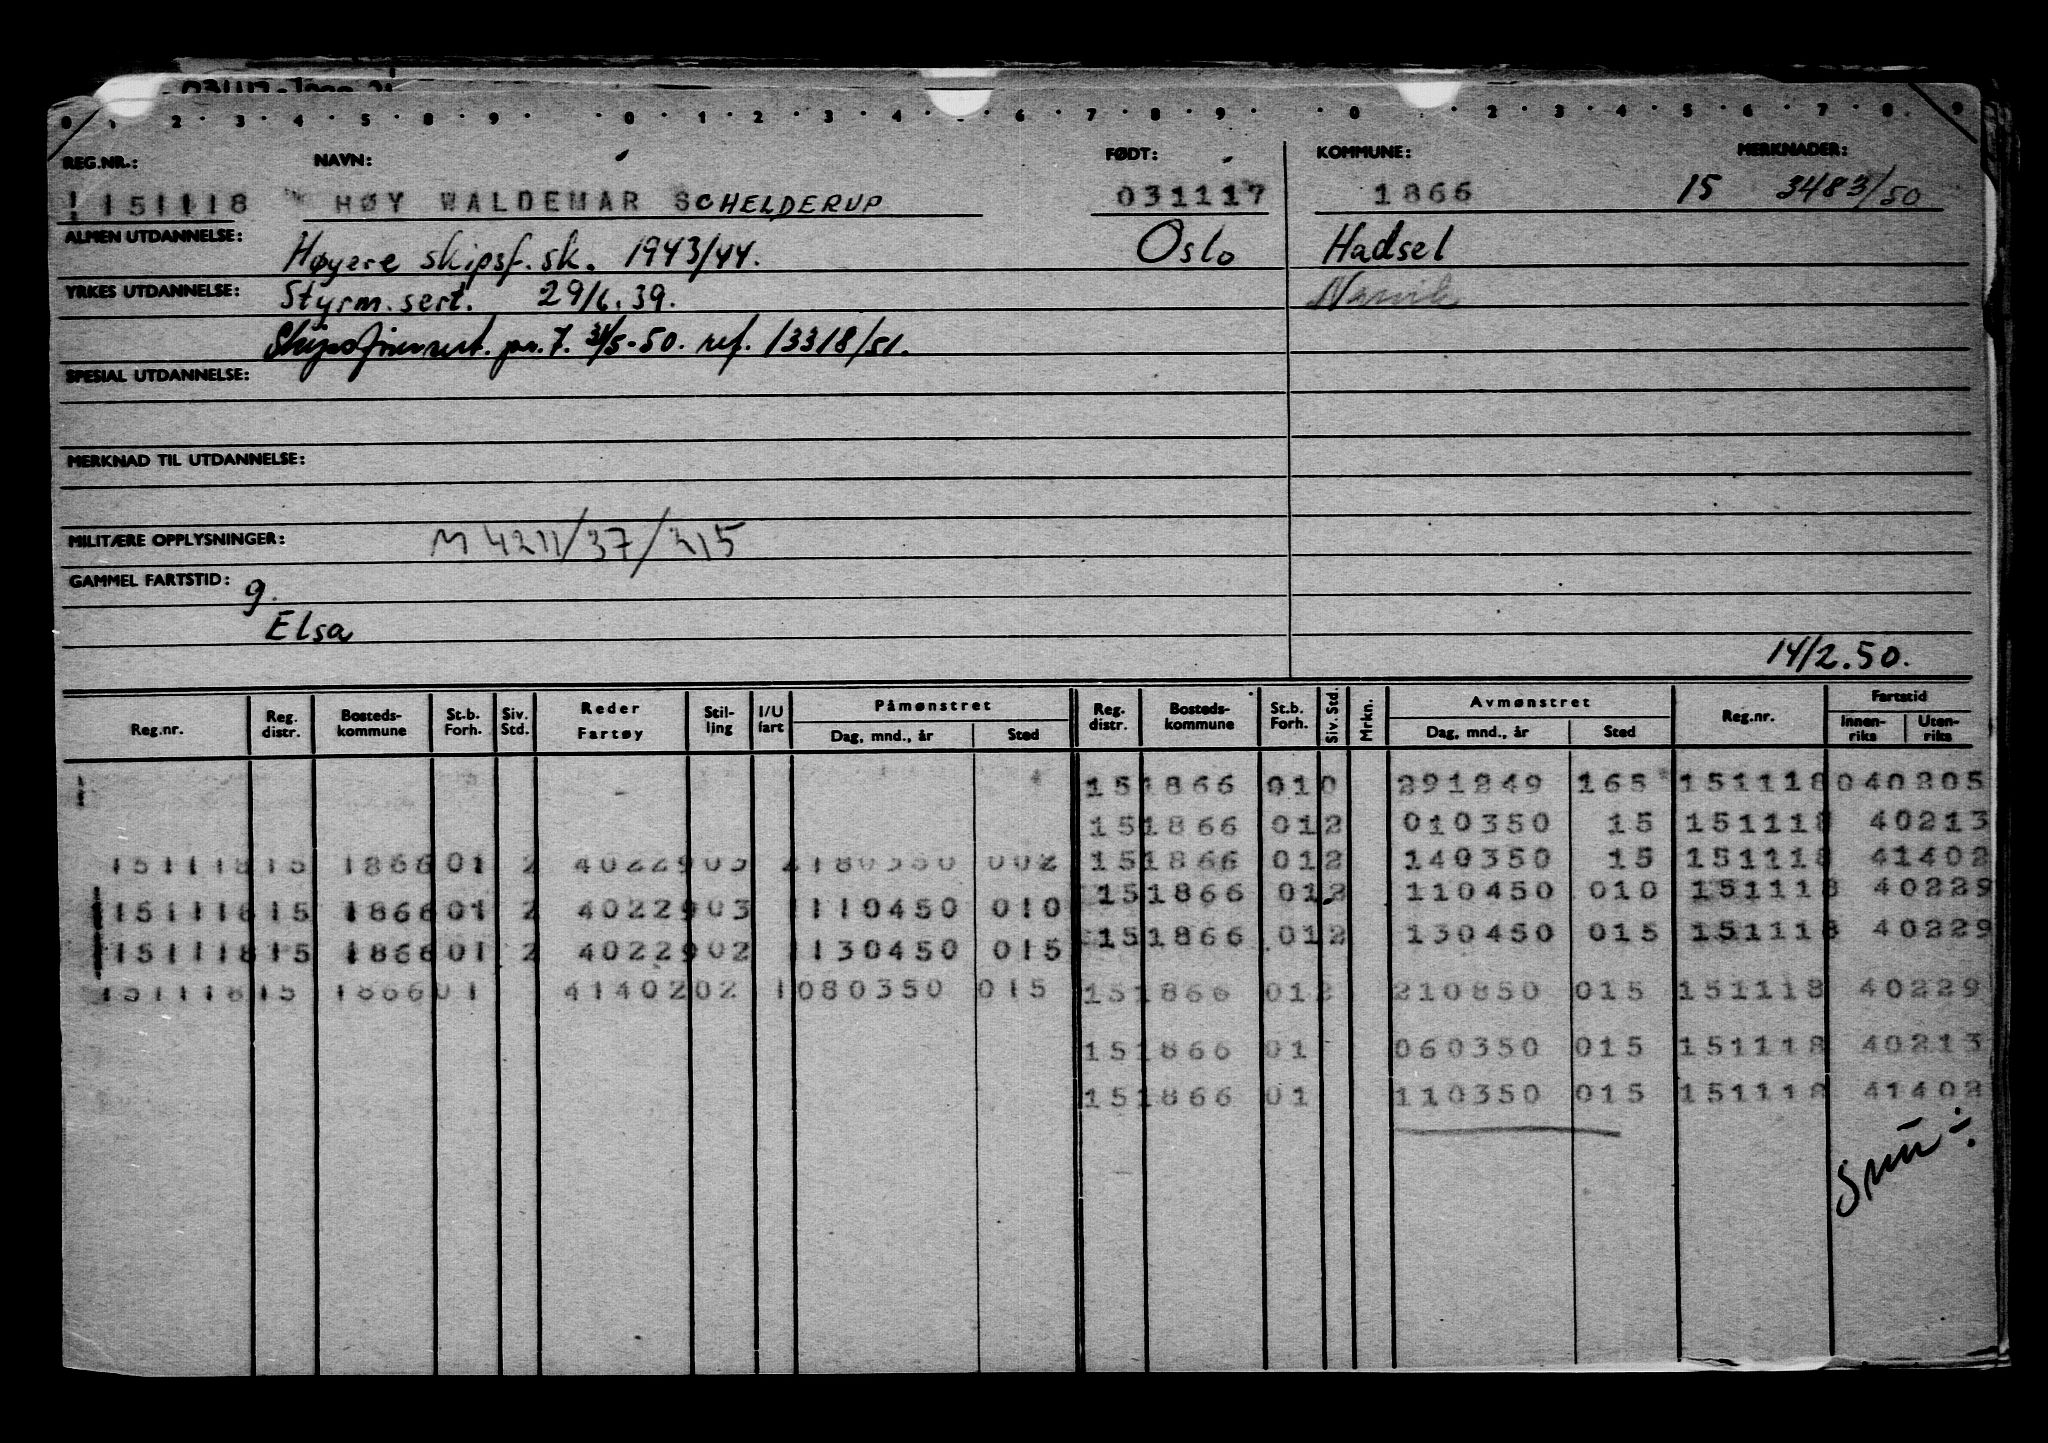 0 1 2 3 4 5 8 9 0 1 2 3 4 6 7 8 9 0 2 3 4 5 6 7 8 9
REG.NR.: NAVN: FØDT: KOMMUNE: MERKNADER:
151118 HØY WALDEMAR SCHELDERUP 031117 1866 15 3483/50
ALMEN UTDANNELSE: Høyere skipsf. sk. 1943/44. Oslo Hadsel
YRKES UTDANNELSE: Styrm. sert. 29/6.39. Narvik
Skipsførersert. pr. 7. 31/5-50. ref. 13318/51.
SPESIAL UTDANNELSE:
MERKNAD TIL UTDANNELSE:
MILITÆRE OPPLYSNINGER: M 4211/37/215
GAMMEL FARTSTID: g.
Elsa
14/2.50.
Reg.nr. Reg. distr. Bosteds- kommune St.b. Forh. Siv. Std. Reder Fartøy Stil- ling I/U fart Påmønstret Dag, mnd., år Sted Reg. distr. Bosteds- kommune St.b. Forh. Siv. Std. Mrkn. Avmønstret Dag, mnd., år Sted Reg.nr. Fartstid Innen- riks Uten- riks
151866 010 291249 165 151118 040205
151866 012 010350 15 151118 40213
151118 15 1866 01 2 40229 03 2 180350 002 151866 012 140350 15 151118 41402
151118 15 1866 01 2 40229 03 1 110450 010 151866 012 110450 010 151118 40229
151118 15 1866 01 2 40229 02 1 130450 015 151866 012 130450 015 151118 40229
151118 15 1866 01 41402 02 1 080350 015 151866 012 210850 015 151118 40229
151866 01 060350 015 151118 40213
151866 01 110350 015 151118 41402